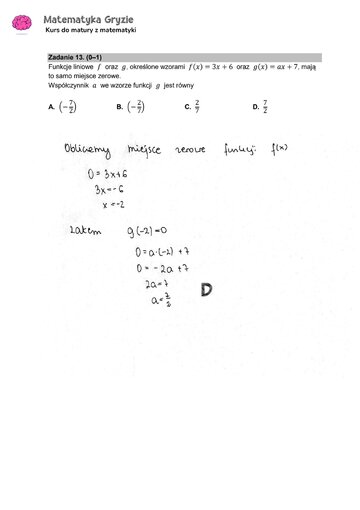 Matematyka Gryzie
Kurs do matury z matematyki
Zadanie 13. (0–1)
Funkcje liniowe f oraz g, określone wzorami f(x) = 3x + 6 oraz g(x) = ax + 7, mają
to samo miejsce zerowe.
Współczynnik a we wzorze funkcji g jest równy
A. (−7/2) B. (−2/7) C. 2/7 D. 7/2
Obliczamy miejsce zerowe funkcji f(x)
0 = 3x+6
3x = -6
x = -2
Zatem g(-2)=0
0 = a·(-2) + 7
0 = -2a + 7
2a = 7
a = 7/2 D